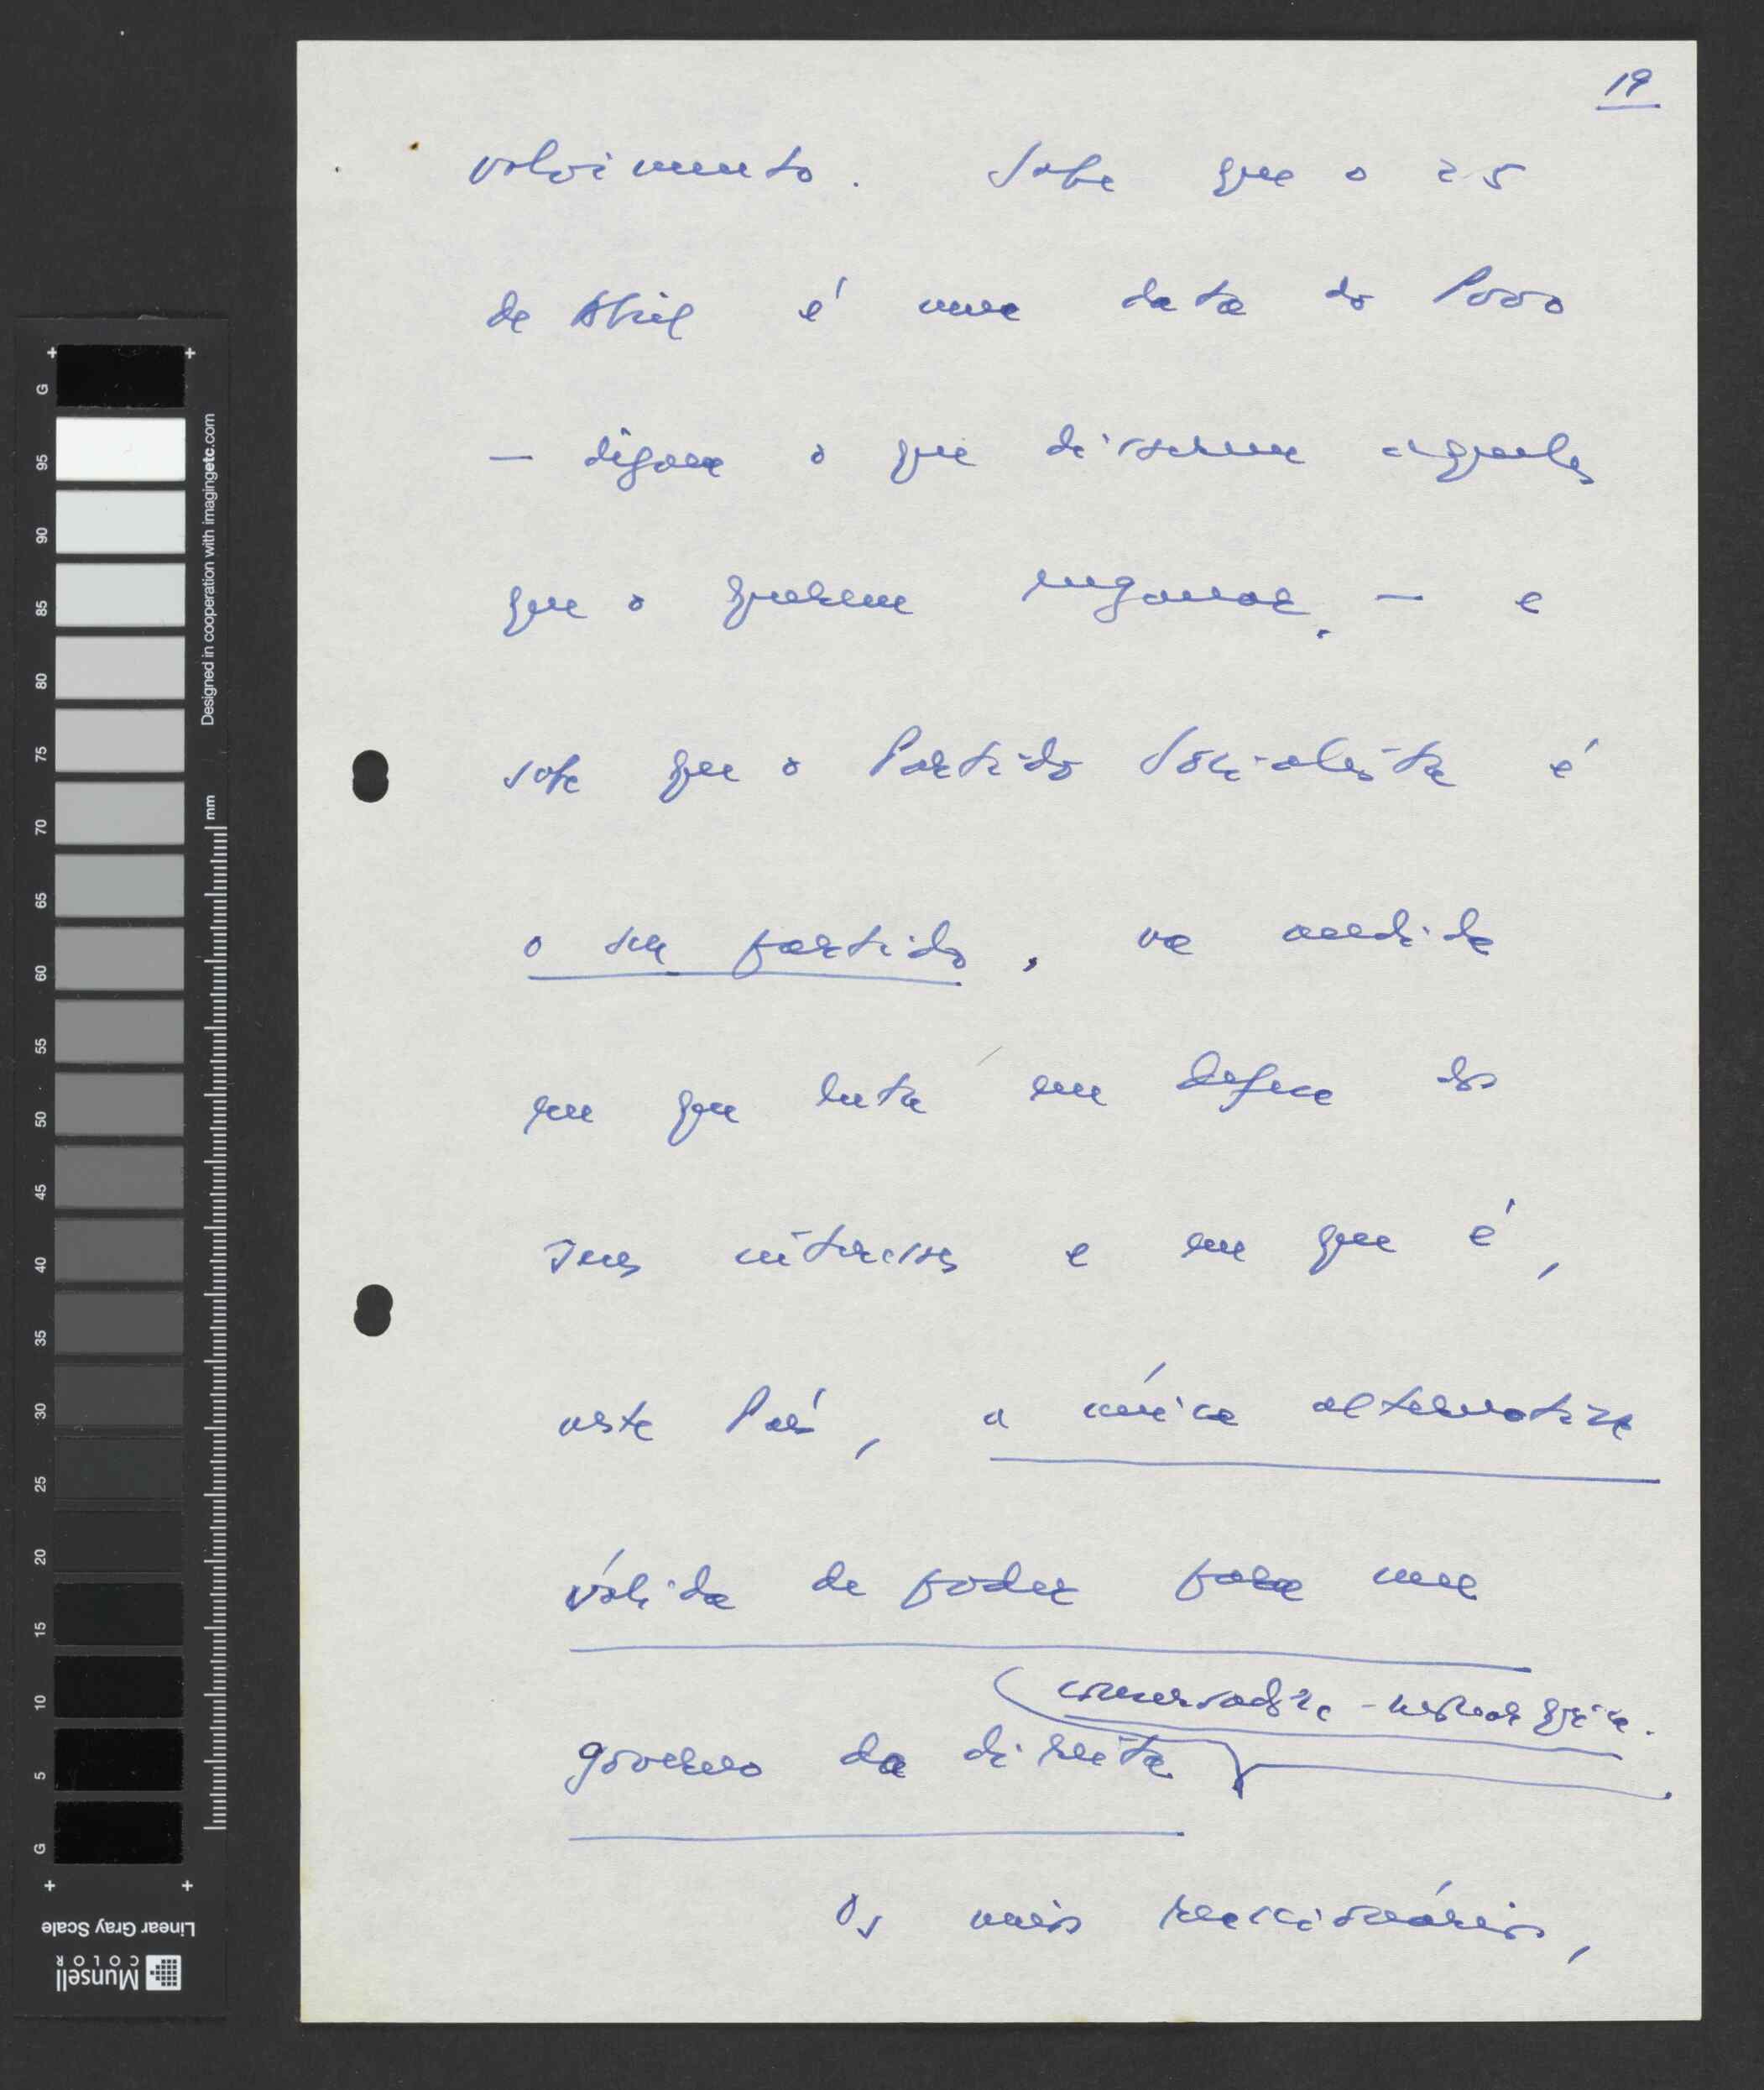 19
volvimento. Sabe que o 25
de Abril é uma data do Povo
— digam o que disserem aqueles
que o querem enganar, — e
sabe que o Partido Socialista é
o seu partido, na medida
em que luta em defesa dos
seus interesses e em que é,
neste País, a única alternativa
válida de poder para um
governo da direita
Os mais reaccionários,
G
95
90
85
80
75
70
65
60
55
50
45
40
35
30
25
20
15
10
5
G
mm
Designed in cooperation with imagingetc.com
Linear Gray Scale
Munsell
COLOR